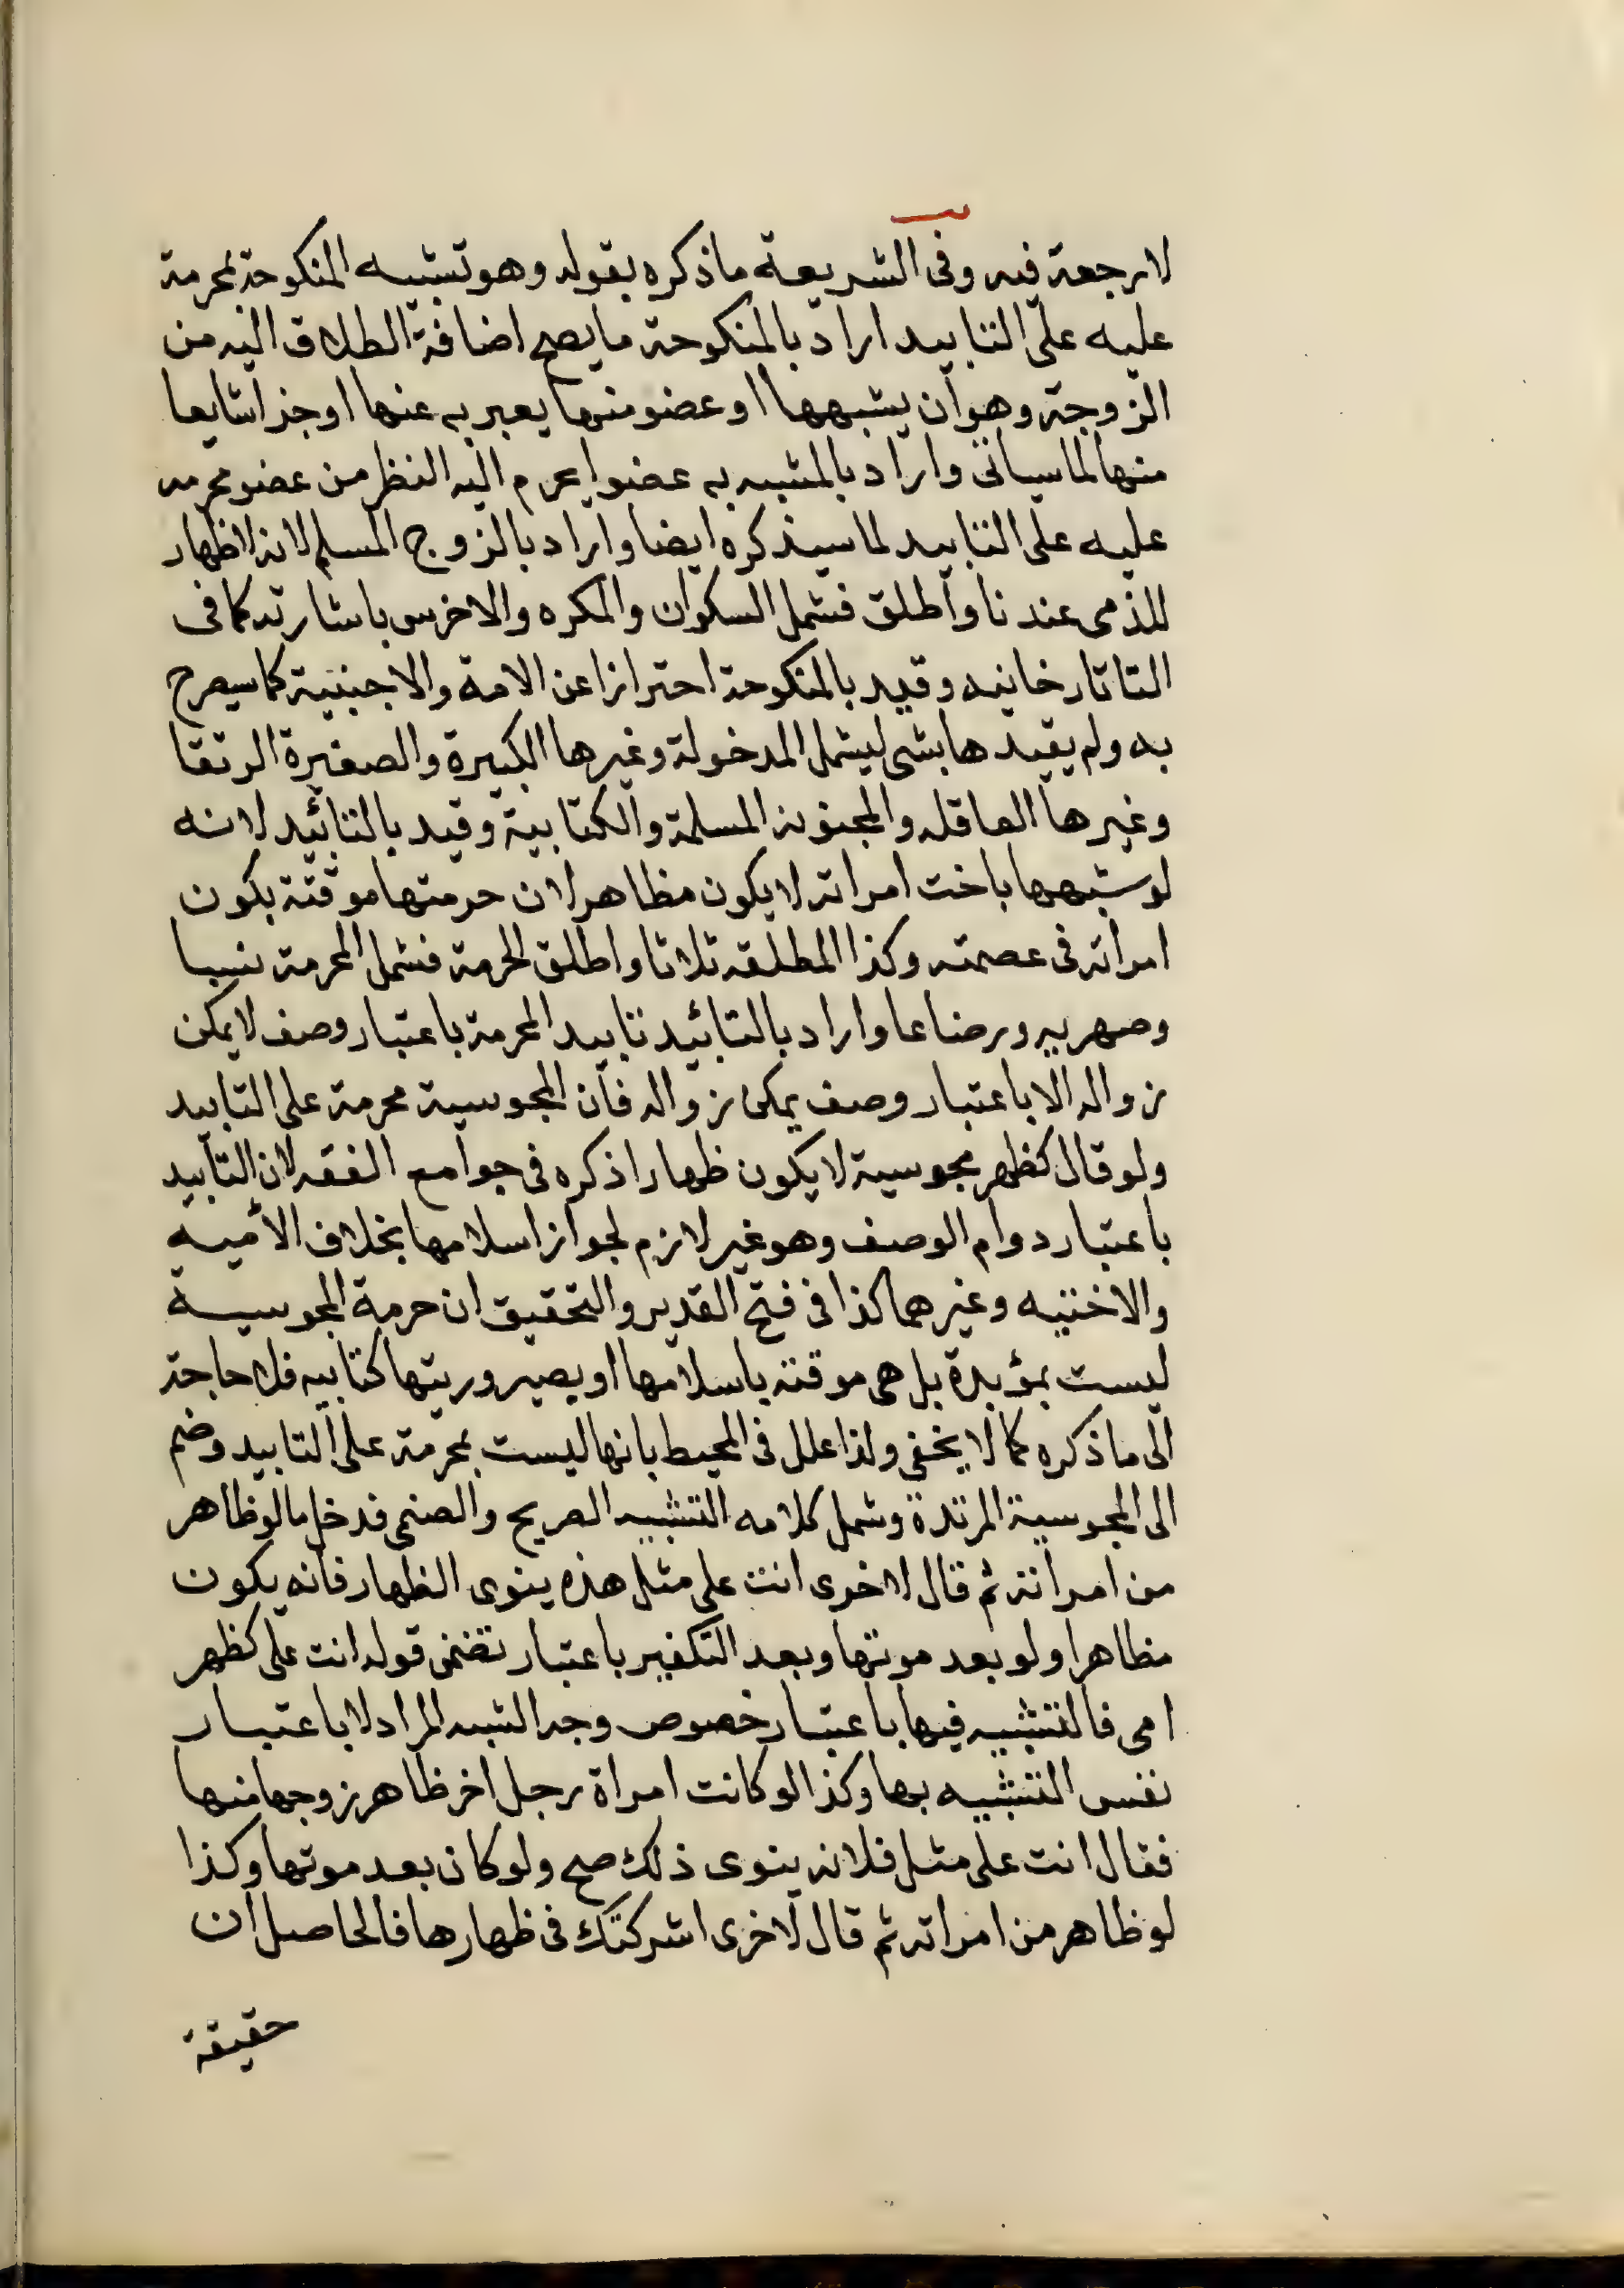 لا رجعة فيه وفى الشريعة ما ذكره بقوله وهو تشبيه المنكوحة بمحرمة
عليه على التابيد اراد بالمنكوحة ما يصح اضافة الطلاق اليه من
الزوجة وهو ان يشبهها او عضو منها يعبر به عنها او جزا شايعا
منها لما سياتى واراد بالمشبه به عضوا يحرم اليه النظر من عضو محرمه
عليه على التابيد لما سيذكره ايضا واراد بالزوج المسلم لانه لا ظهار
للذمى عندنا واطلق فشمل السكران والمكره والاخرس باشارته كما فى
التاتارخانيه وقيد بالمنكوحة احترازا عن الامة والاجنبية كما سيصرح
به ولم يقيدها بشى ليشمل المدخولة وغيرها الكبيرة والصغيرة الرتقا
وغيرها العاقله والمجنونة المسلمة والكتابية وقيد بالتائيد لانه
لو شبهها باخت امراته لا يكون مظاهر لان حرمتها موقتة بكون
امراته فى عصمته وكذا المطلقه ثلاثا واطلق الحرمة فشمل المحرمة نسبا
وصهريه ورضاعا واراد بالتائيد تابيد الحرمة باعتبار وصف لا يمكن
زواله الا باعتبار وصف يمكن زواله فان المجوسية محرمة على التابيد
ولو قال كظهر مجوسية لا يكون ظهارا ذكره فى جوامع الفقه لان التابيد
باعتبار دوام الوصف وهو غير لازم لجواز اسلامها بخلاف الأميه
والاختيه وغيرهما كذا فى فتح القدير والتحقيق ان حرمة المجوسية
ليست بمؤبدة بل هى موقتة باسلامها او بصيرورتها كتابيه فلا حاجة
الى ما ذكره كما لا يخفى ولذا علل فى المحيط بانها ليست بمحرمة على التابيد وضم
الى المجوسية المرتدة وشمل كلامه التشبيه الصريح والضمنى فدخل ما لو ظاهر
من امراته ثم قال لاخرى انت على مثل هذه ينوى الظهار فانه يكون
مظاهرا ولو بعد موتها وبعد التكفير باعتبار تضمن قوله انت على كظهر
امى فالتشبيه فيها باعتبار خصوص وجه الشبه المراد لا باعتبار
نفس التشبيه بها وكذا لو كانت امراة رجل اخر ظاهر زوجها منها
فقال انت على مثل فلانه ينوى ذلك صح ولو كان بعد موتها وكذا
لو ظاهر من امراته ثم قال لاخرى اشركتك فى ظهارها فالحاصل ان
حقيقة